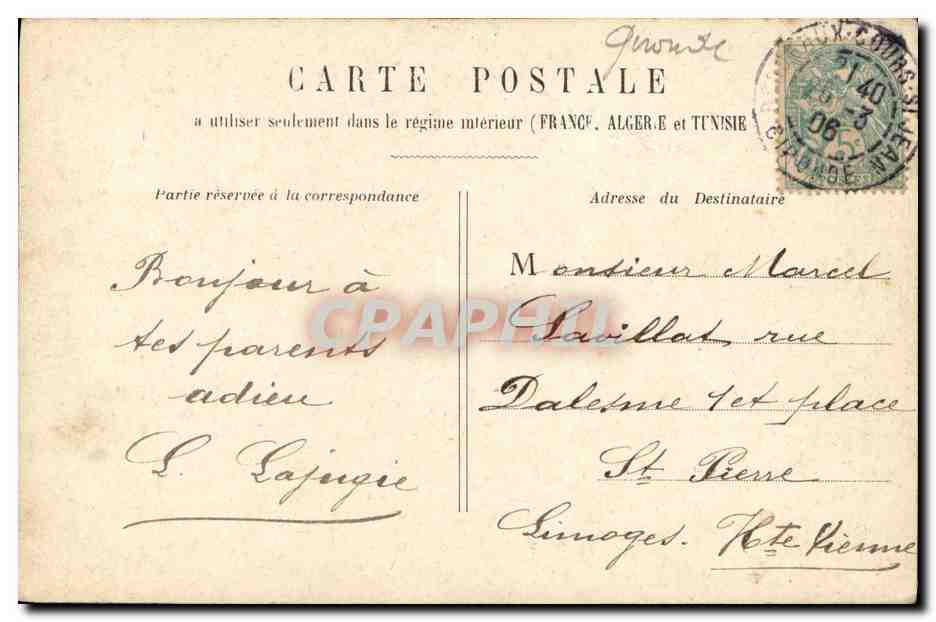 Gironde
CARTE POSTALE
a utiliser seulement dans le régime intérieur (FRANCE, ALGERIE et TUNISIE
COURS-ST-JEAN
GIRONDE
1 40
3
06
5c
Partie réservée à la correspondance
Bonjour à
tes parents
adieu
L. Lajugie
Adresse du Destinataire
Monsieur Marcel
Lavillat, rue
Dalesme 1 et place
St Pierre
Limoges. Hte Vienne
CPAPHIL